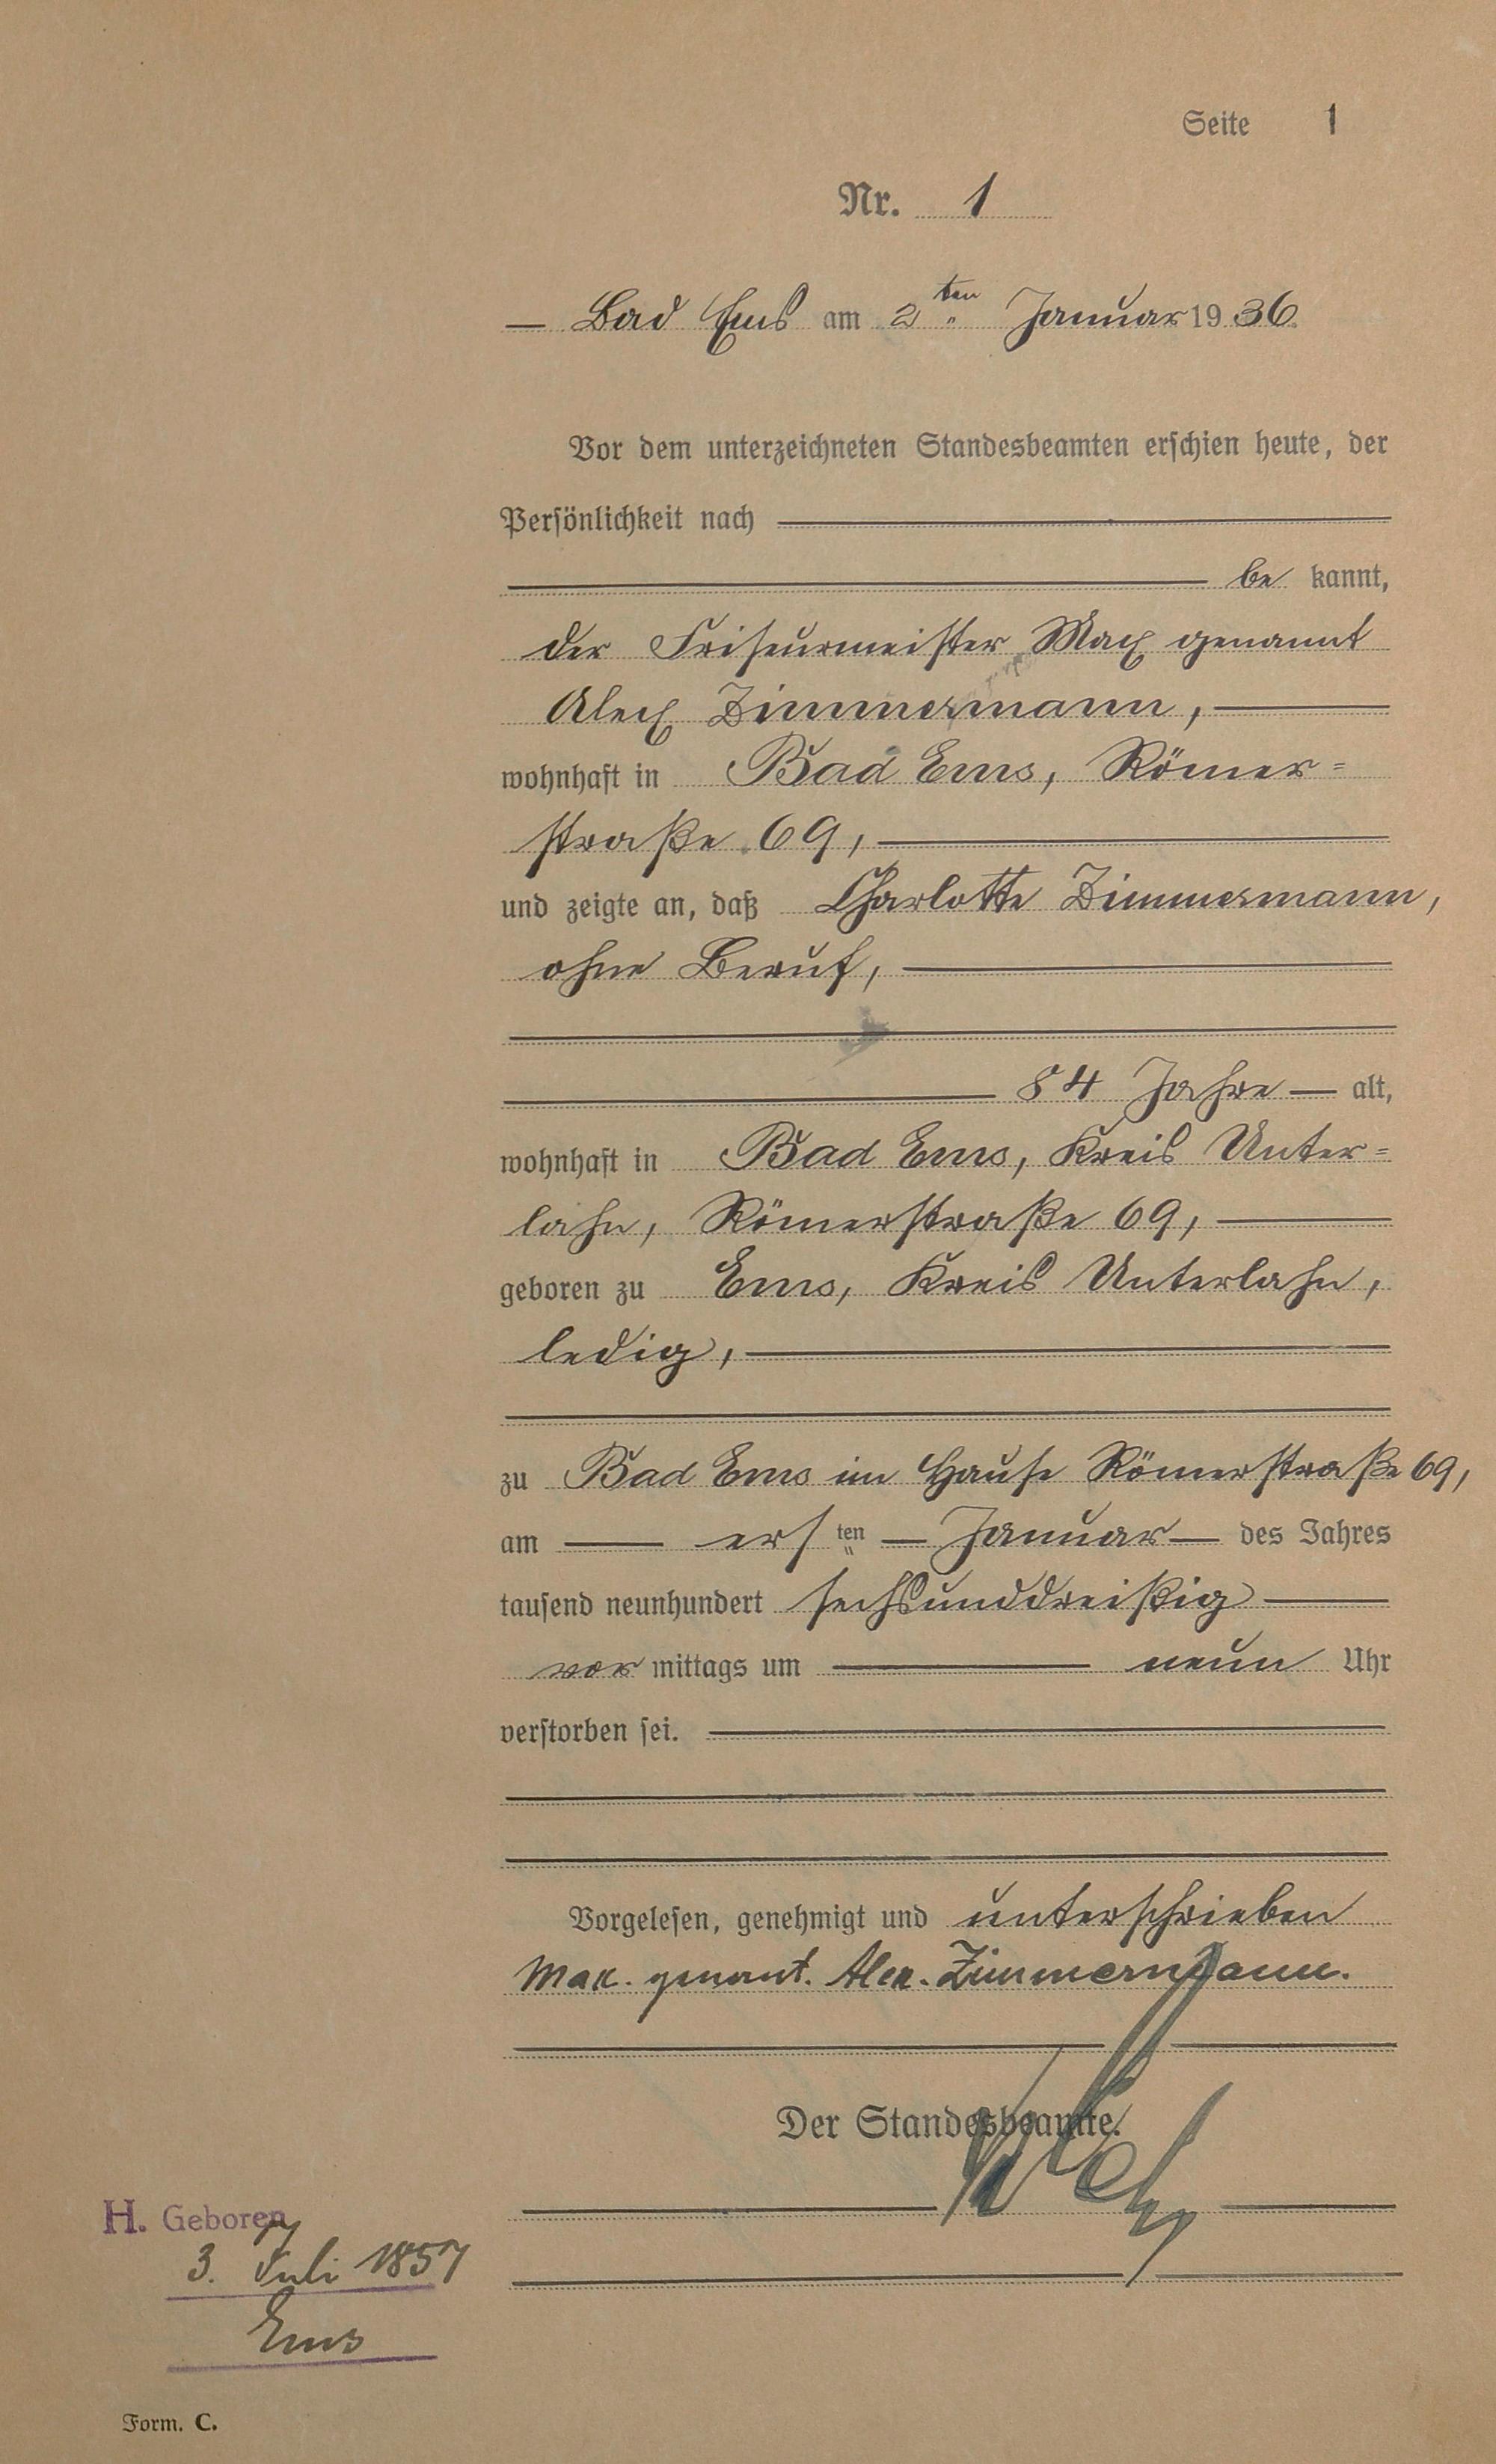 Seite 1
Nr. 1
Bad Ems am 2ten Januar 1936.
Vor dem unterzeichneten Standesbeamten erschien heute, der
Persönlichkeit nach
be kannt,
der Friseurmeister Max genannt
Alex Zimmermann,
wohnhaft in Bad Ems, Römer=
straße 69,
und zeigte an, daß Charlotte Zimmermann,
ohne Beruf,
84 Jahre alt,
wohnhaft in Bad Ems, Kreis Unter=
lahn, Römerstraße 69,
geboren zu Ems, Kreis Unterlahn,
ledig,
zu Bad Ems im Hause Römerstraße 69,
am ersten Januar des Jahres
tausend neunhundert sechsunddreißig
vor mittags um neun Uhr
verstorben sei.
Vorgelesen, genehmigt und unterschrieben
Max. genant. Alex. Zimmermann.
Der Standesbeamte.
H. Geboren
3. Juli 1851
Ems
Form. C.